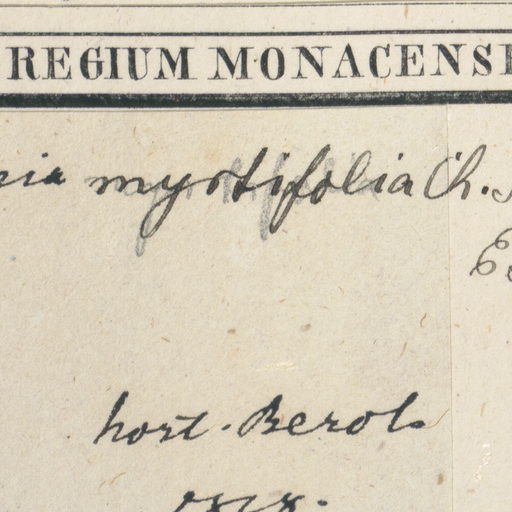 REGIUM MONACENS
myrtifolia Ch.
hort. Berol.